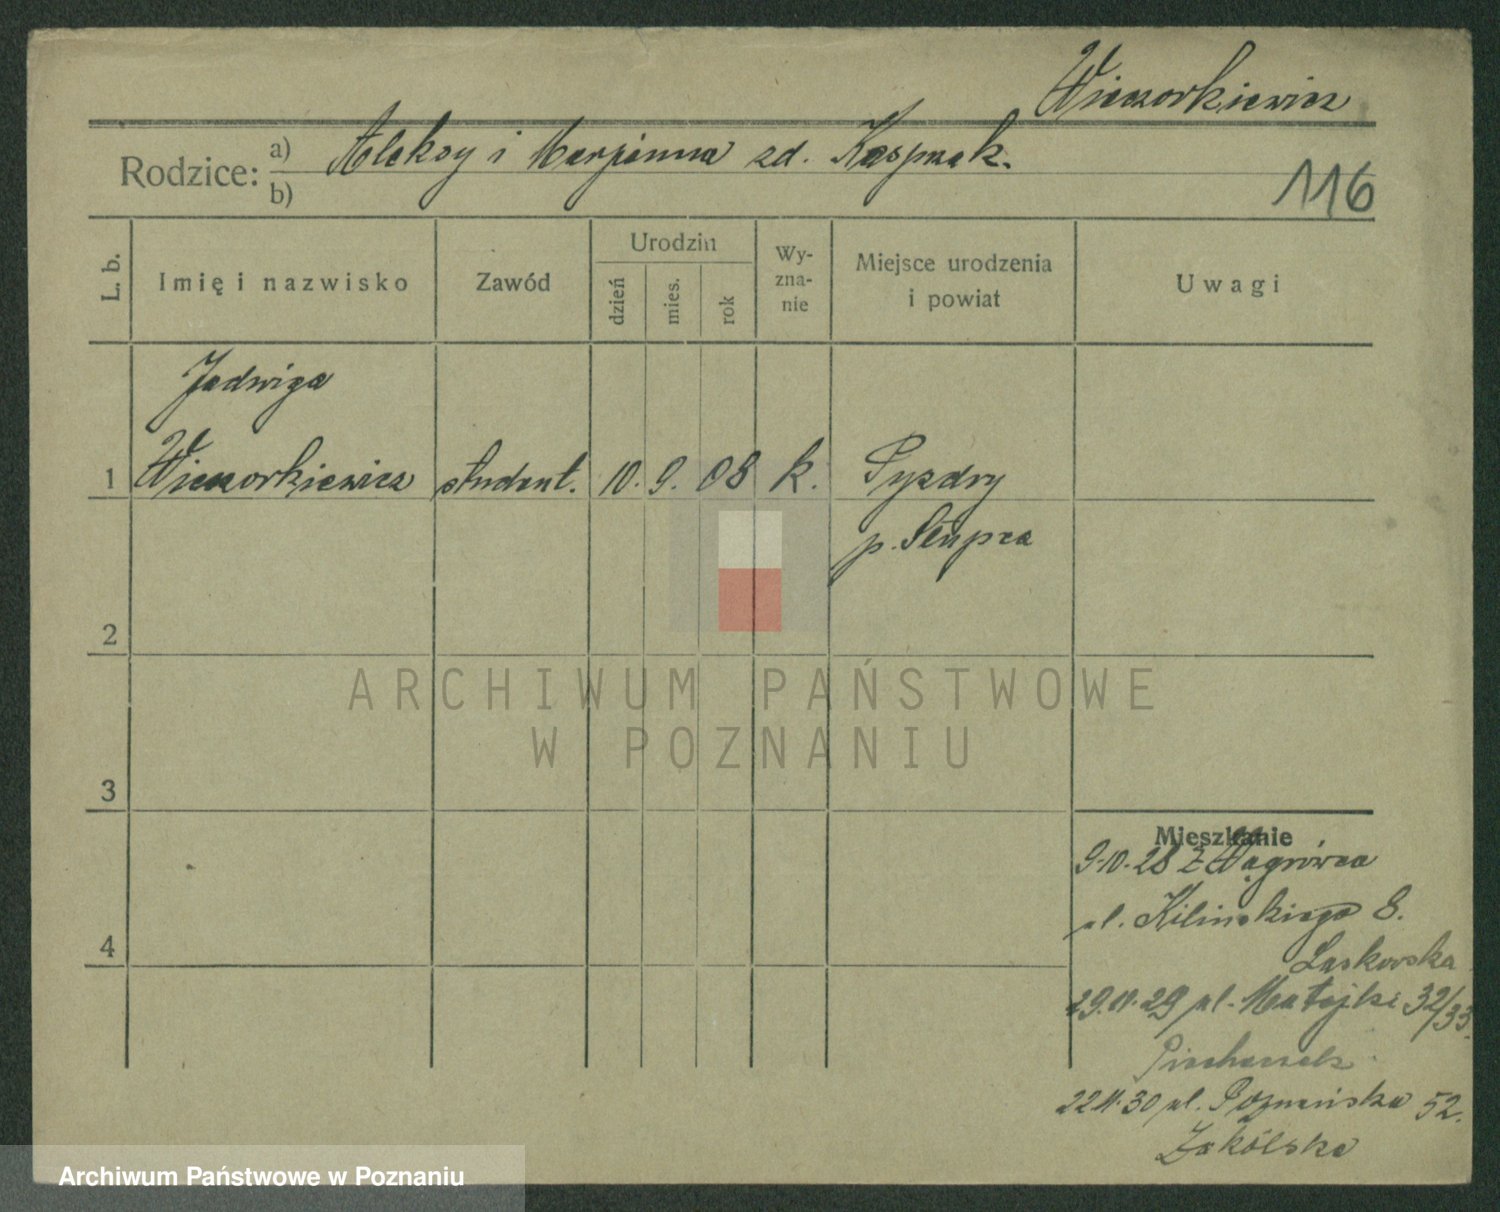 Wieczorkiewicz
Rodzice: a) Aleksy i Marjanna zd. Kasprzak.
b)
116
L. b.
Imię i nazwisko
Zawód
Urodzin
dzień
mies.
rok
Wy-
zna-
nie
Miejsce urodzenia
i powiat
Uwagi
Jadwiga
1 Wieczorkiewicz student. 10. 9. 08 k. Pyzdry
p. Słupca
2
3
4
Mieszkanie
9.10.28 z Wągrówca
ul. Kilińskiego 8.
Laskowska
29.11.29 ul. Matejki 32/33.
22.11.30 ul. Poznańska 52.
Zakólska
ARCHIWUM PAŃSTWOWE
W POZNANIU
Archiwum Państwowe w Poznaniu